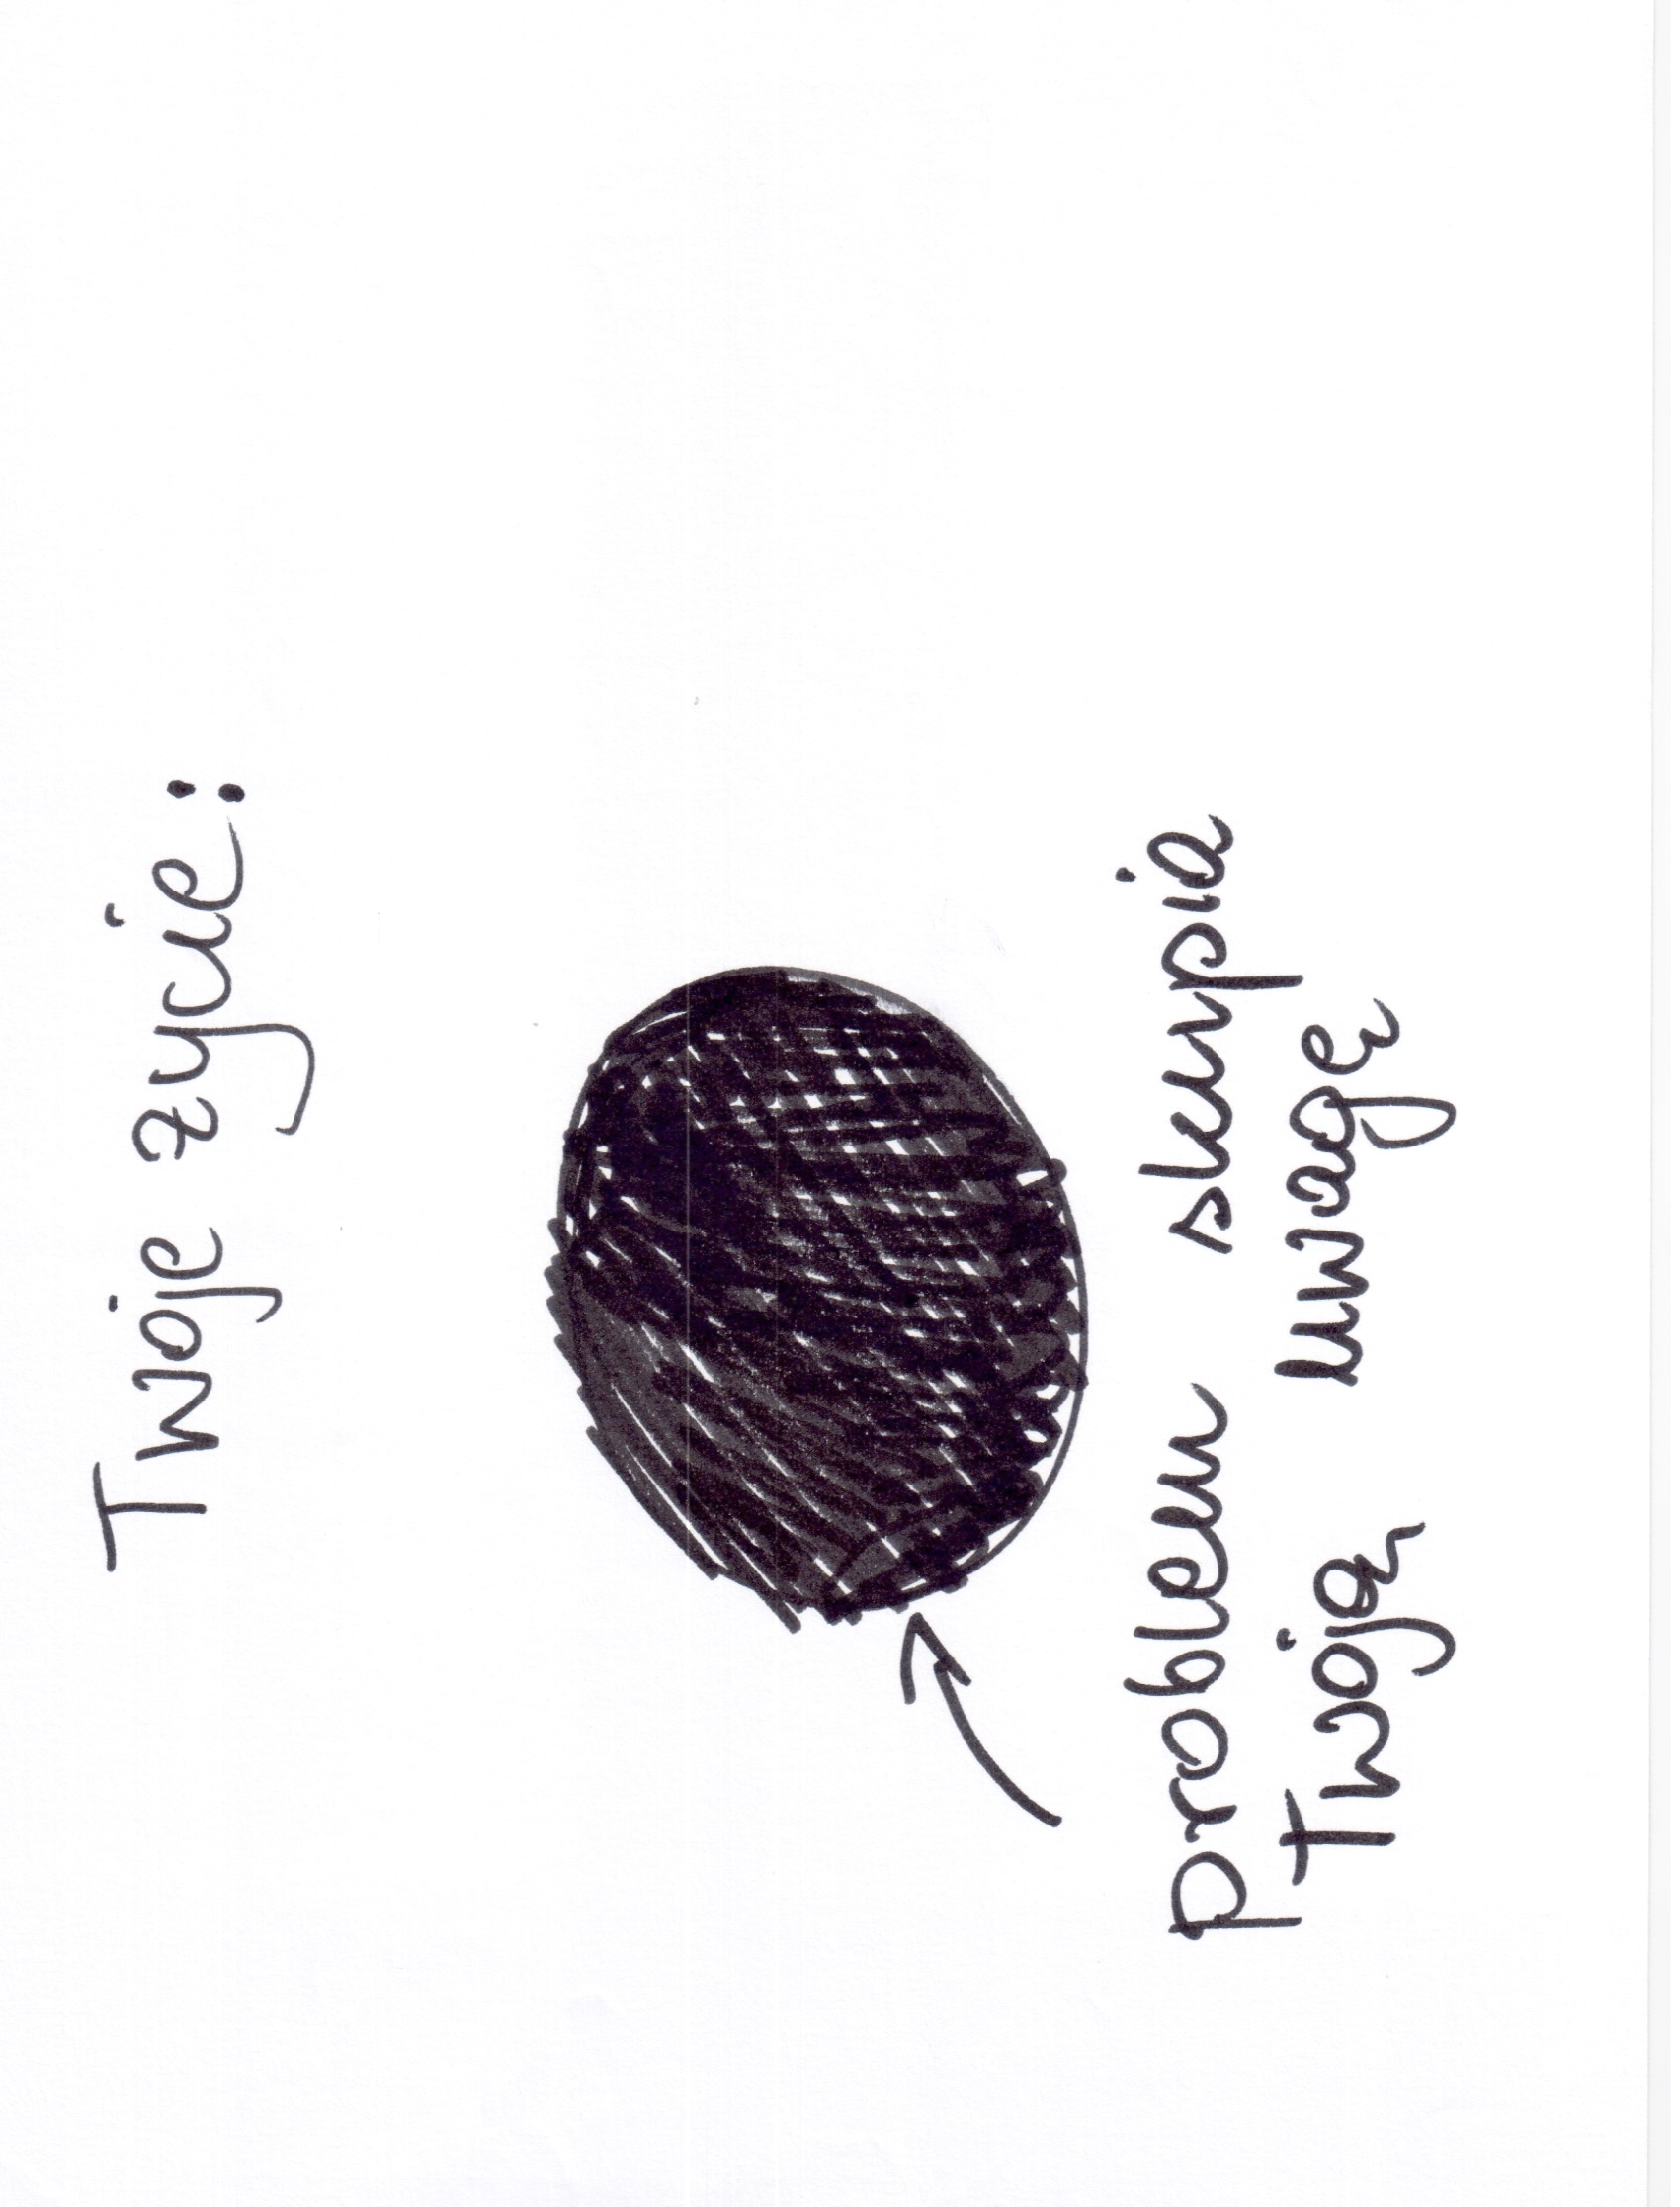 Twoje życie:
problem skupia
Twoją uwagę